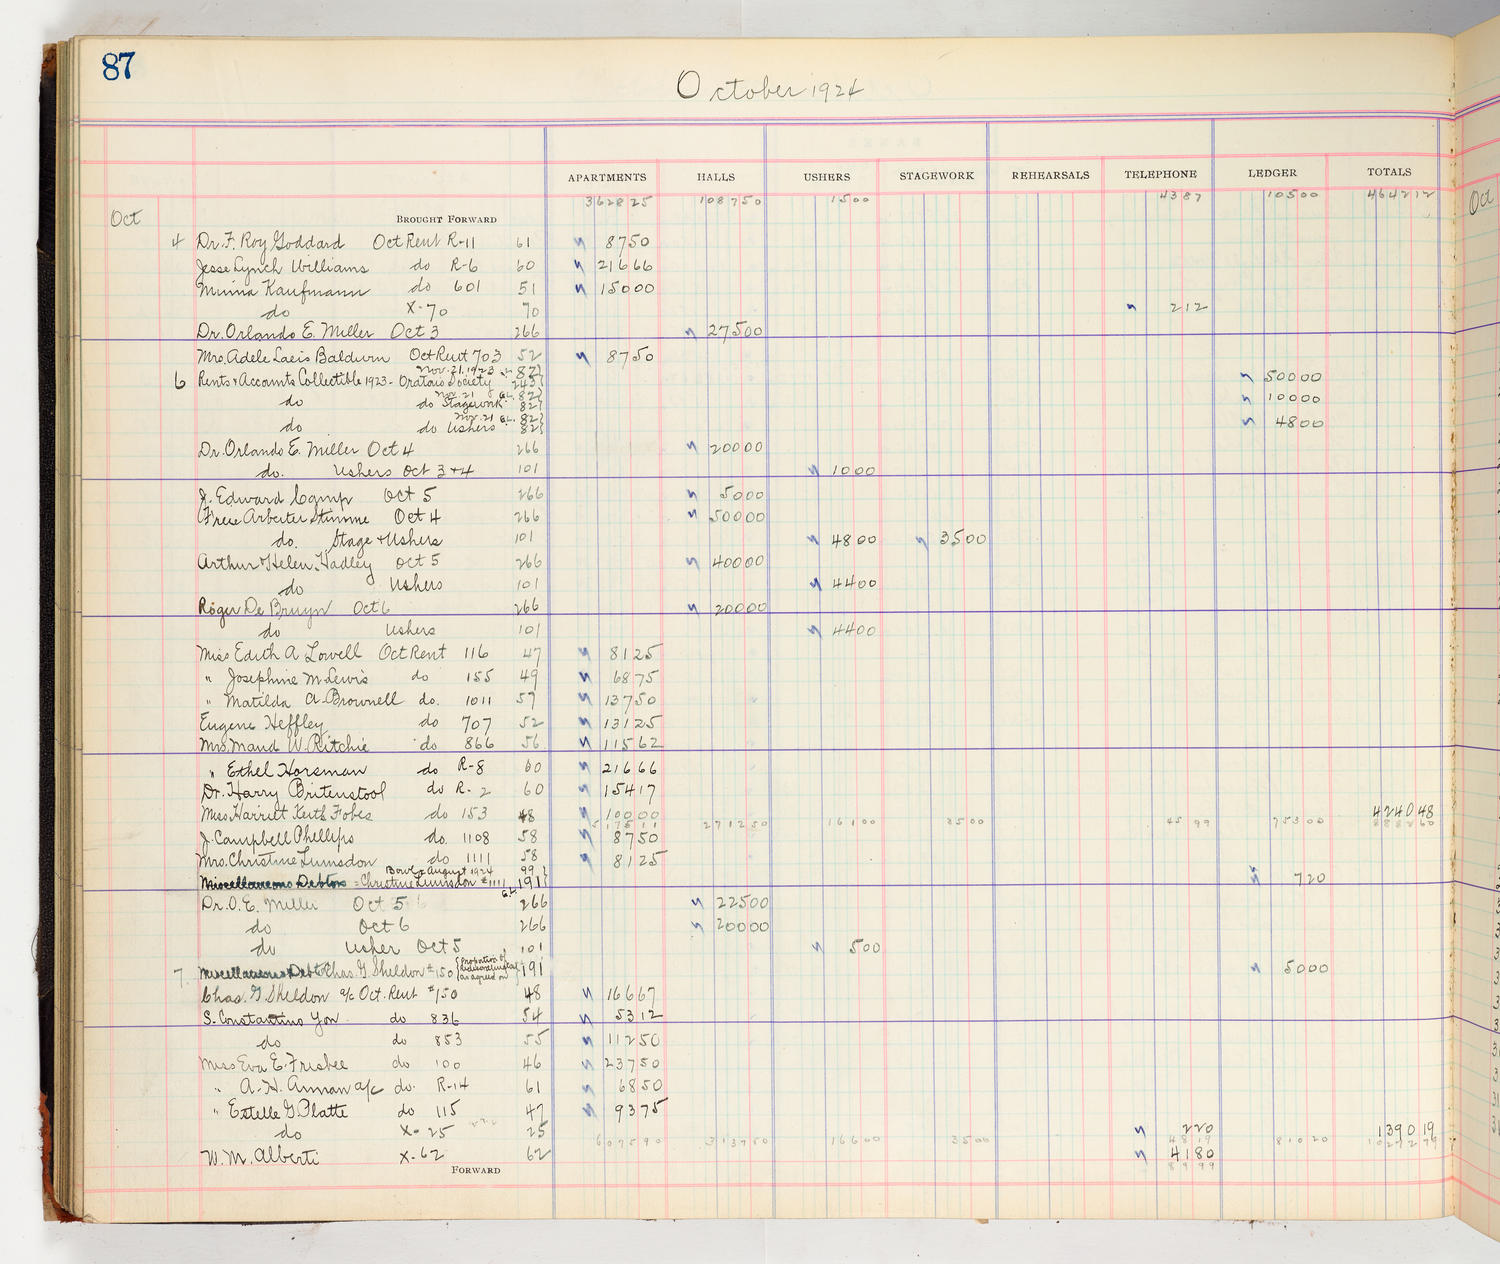 87
October 1924
APARTMENTS HALLS USHERS STAGEWORK REHEARSALS TELEPHONE LEDGER TOTALS
Oct BROUGHT FORWARD 362825 108750 1500 4387 10500 464212
4 Dr. F. Roy Goddard Oct Rent R-11 61 8750
Jesse Lynch Williams do R-6 60 21666
Minna Kaufmann do 601 51 15000
do X-70 70 212
Dr. Orlando E. Miller Oct 3 266 27500
Mrs. Adele Laeis Baldwin Oct Rent 703 52 8750
Nov. 21, 1923 82
6 Rents & Accounts Collectible 1923 - Oratorio Society 243 50000
Nov. 21 G.L. 82
do do Stagework 82 10000
Nov. 21 G.L. 82
do do Ushers 82 4800
Dr. Orlando E. Miller Oct 4 266 20000
do. Ushers Oct 3 + 4 101 1000
J. Edward Comp Oct 5 266 5000
Freie Arbeiter Stimme Oct 4 266 50000
do. Stage & Ushers 101 4800 3500
Arthur & Helen Hadley Oct 5 266 40000
do Ushers 101 4400
Roger De Bruyn Oct 6 266 20000
do Ushers 101 4400
Miss Edith A Lowell Oct Rent 116 47 8125
" Josephine M. Lewis do 155 49 6875
" Matilda A. Brownell do. 1011 57 13750
Eugene Heffley do 707 52 13125
Mrs. Maud W. Ritchie do 866 56 11562
" Ethel Horsman do R-8 60 21666
Dr. Harry Britenstool do R-2 60 15417
Miss Harriet Keith Fobes do 153 48 10000 424048
517511 271250 16100 3500 4599 75300 888260
J. Campbell Phillips do. 1108 58 8750
Mrs. Christine Lumsdon do 1111 58 8125
August 1924 99
Miscellaneous Debtors = Christine Lumsdon #1111 191 720
G.L.
Dr. O. E. Miller Oct 5 266 22500
do Oct 6 266 20000
do Usher Oct 5 101 500
7. Miscellaneous Debtors Chas. G. Sheldon #150 Proportion of as agreed on 191 5000
Chas. G. Sheldon a/c Oct. Rent #150 48 16667
S. Constantino Yon do 836 54 5312
do do 853 55 11250
Miss Eva E. Frisbee do 100 46 23750
" A. H. Annan a/c do. R-14 61 6850
" Estelle G. Platte do 115 47 9375
do X-25 25 220 139019
607590 313750 16600 3500 4819 81020 1027279
W. M. Alberti X-62 62 4180
FORWARD 8999
Oct